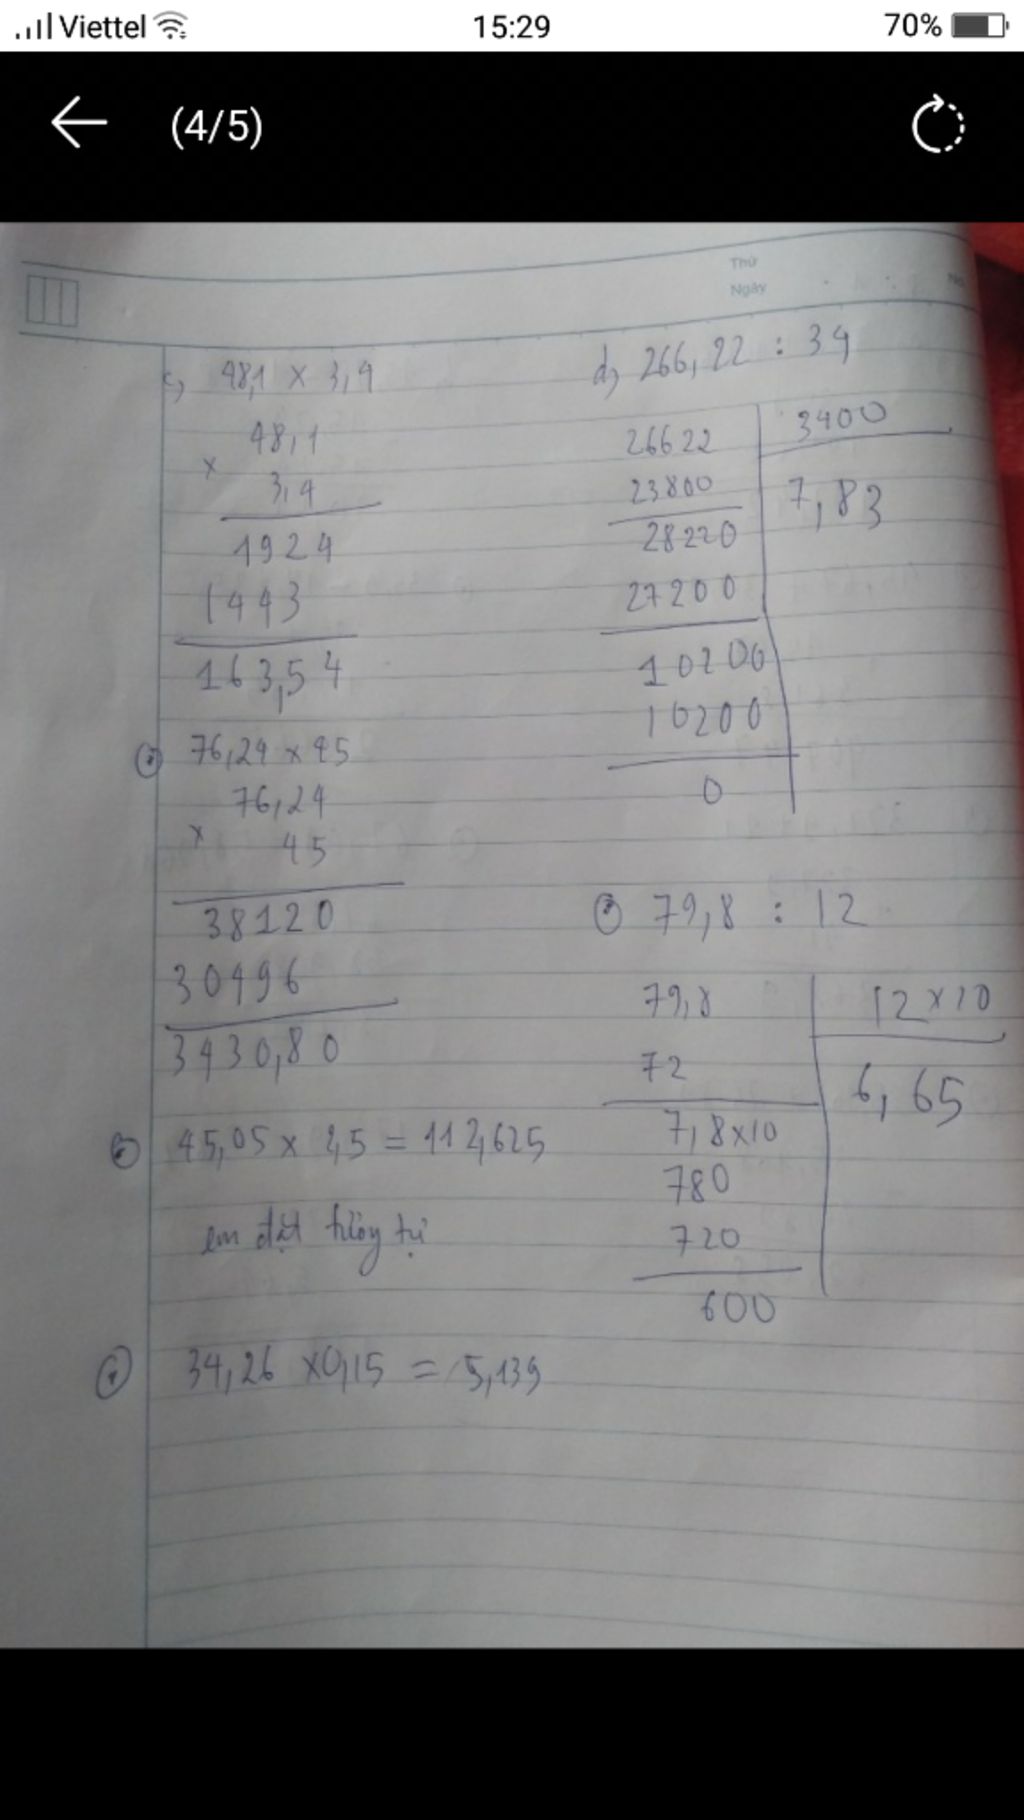 Viettel 15:29 70%
(4/5)
Thứ
Ngày
c, 48,1 x 3,4
48,1
x
3,4
1924
1443
163,54
76,24 x 45
76,24
x
45
38120
30496
3430,80
45,05 x 2,5 = 112,625
em đặt tương tự
34,26 x 0,15 = 5,139
d, 266,22 : 34
26622 3400
23800 7,83
28220
27200
10200
10200
0
79,8 : 12
79,8 12 x 10
72 6,65
7,8 x 10
780
720
600